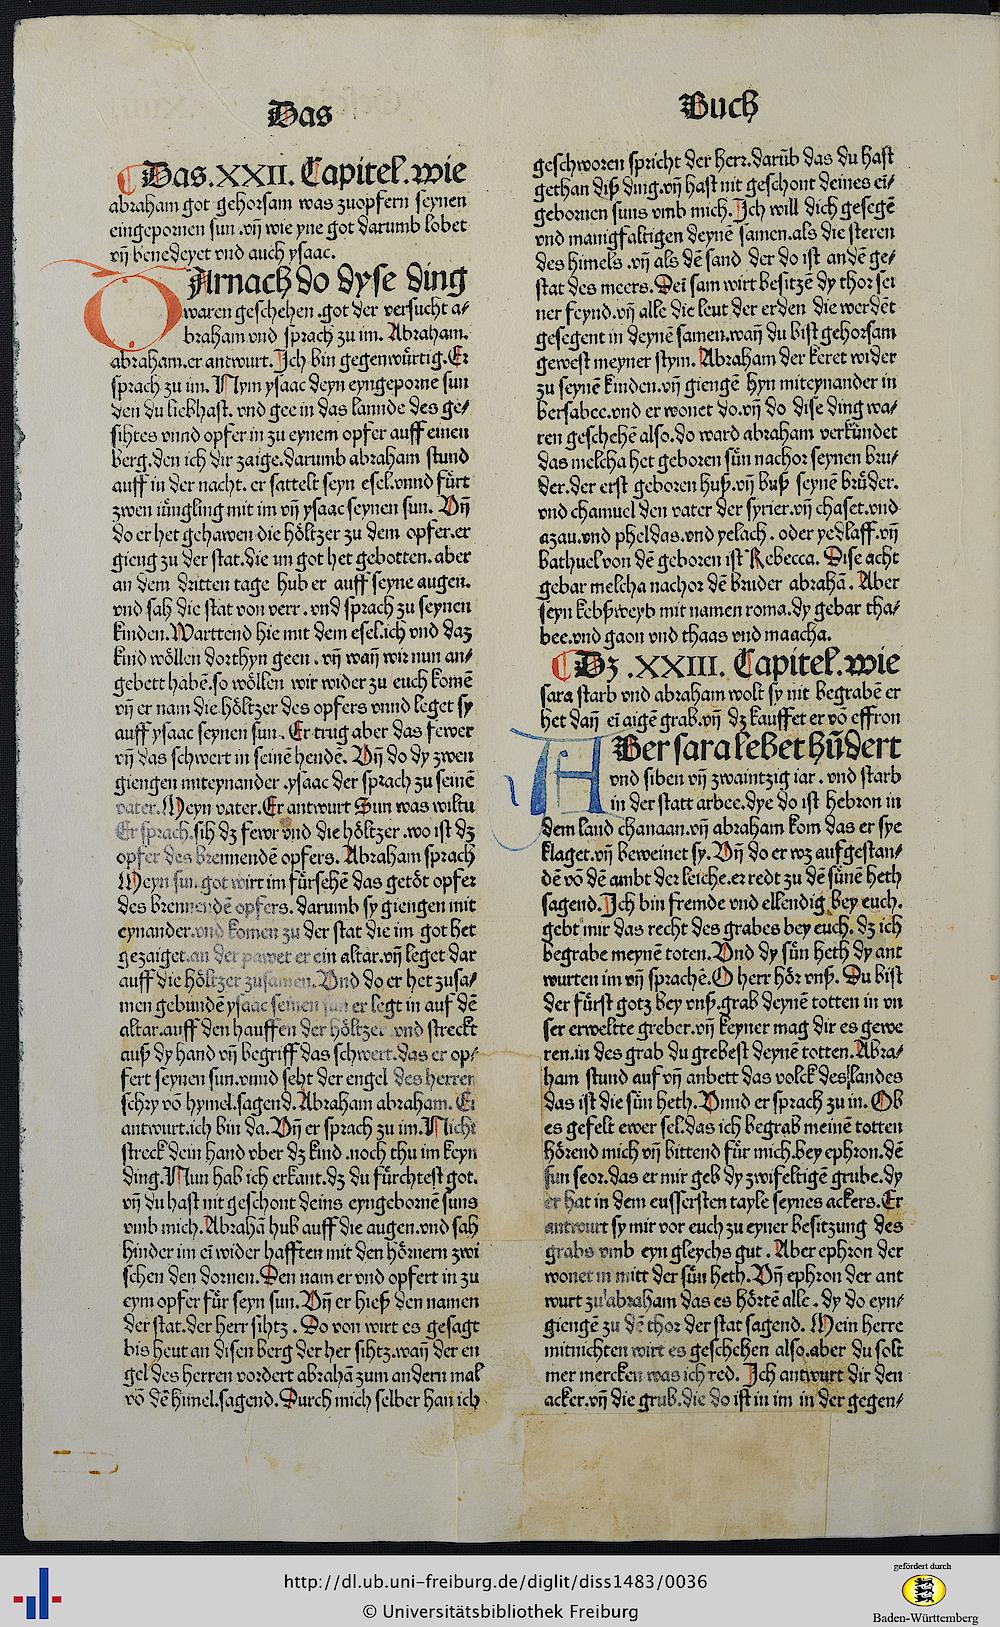 Das
Das.XXII.Capitel.wie
abraham got gehorsam was zuopfern seynen
eingepornen sun .vñ wie yne got darumb lobet
vñ benedeyet vnd auch ysaac.
DArnach do dyse ding
waren geschehen .got der versucht a⸗
braham vnd sprach zu im. Abraham.
abraham.er antwurt. Ich bin gegenwürtig.Er
sprach zu im. Nym ysaac deyn eyngeporne sun
den du liebhast. vnd gee in das lannde des ge⸗
sihtes vnnd opfer in zu eynem opfer auff einen
berg.den ich dir zaige.darumb abraham stund
auff in der nacht. er sattelt seyn esel.vnnd fürt
zwen iüngling mit im vñ ysaac seynen sun. Vñ
do er het gehawen die höltzer zu dem opfer.er
gieng zu der stat.die im got het gebotten.aber
an dem dritten tage hub er auff seyne augen.
vnd sah die stat von verr . vnd sprach zu seynen
kinden.Warttend hie mit dem esel.ich vnd daz
kind wöllen dorthyn geen . vñ wañ wir nun an⸗
gebett habē.so wöllen wir wider zu euch komē
vñ er nam die höltzer des opfers vnnd leget sy
auff ysaac seynen sun. Er trug aber das fewer
vñ das schwert in seinē hendē. Vñ do dy zwen
giengen miteynander .ysaac der sprach zu seinē
vater.Meyn vater.Er antwurt Sun was wiltu
Er sprach.sih dz fewr vnd die höltzer .wo ist dz
opfer des brennendē opfers. Abraham sprach
Meyn sun.got wirt im fürsehē das getöt opfer
des brennendē opfers. darumb sy giengen mit
eynander.vnd komen zu der stat die im got het
gezaiget.an der pawet er ein altar.vñ leget dar
auff die höltzer zusamen. Vnd do er het zusa⸗
men gebundē ysaac seinen sun er legt in auf dē
altar.auff den hauffen der höltzer .vnd streckt
auß dy hand vñ begriff das schwert.das er op⸗
fert seynen sun.vnnd seht der engel des herren
schry vō hymel.sagend.Abraham abraham. Er
antwurt.ich bin da.Vñ er sprach zu im.Nicht
streck dein hand vber dz kind .noch thu im keyn
ding.Nun hab ich erkant.dz du fürchtest got.
vñ du hast nit geschont deins eyngebornē suns
vmb mich.Abrahā hub auff die augen.vnd sah
hinder im ei wider hafften mit den hörnern zwi
schen den dornen.Den nam er vnd opfert in zu
eym opfer für seyn sun. Vñ er hieß den namen
der stat.der herr sihtz . Do von wirt es gesagt
bis heut an disen berg der her sihtz.wañ der en
gel des herren vordert abrahā zum andern mal
vō dē himel.sagend.Durch mich selber han ich
Buch
geschworen spricht der herr.darūb das du hast
gethan diß ding.vñ hast nit geschont deines ei⸗
gebornen suns vmb mich.Ich will dich gesegē
vnd manigfaltigen deynē samen.als die steren
des himels .vñ als dē sand der do ist andē ge⸗
stat des meers.Dei sam wirt besitzē dy thor sei
ner feynd.vñ alle die leut der erden die werdēt
gesegent in deynē samen.wañ du bist gehorsam
gewest meyner stym. Abraham der keret wider
zu seynē kinden.vñ giengē hyn miteynander in
bersabee.vnd er wonet do.vñ do dise ding wa⸗
ren geschehē also.do ward abraham verkündet
das melcha het geboren sün nachor seynen bru⸗
der.der erst geboren huß.vñ buß seynē brüder.
vnd chamuel den vater der syrier.vñ chaset.vnd
azau.vnd pheldas.vnd yelach . oder yedlaff.vñ
bathuel von dē geboren ist Rebecca. Dise acht
gebar melcha nachor dē bruder abrahā. Aber
seyn kebßweyb mit namen roma.dy gebar tha⸗
bee.vnd gaon vnd thaas vnd maacha.
Dz .XXIII. Capitel.wie
sara starb vnd abraham wolt sy nit begrabē er
het dañ ei aigē grab.vñ dz kauffet er vō effron
ABer sara lebet hūdert
vnd siben vñ zwaintzig iar . vnd starb
in der statt arbee.dye do ist hebron in
dem land chanaan.vñ abraham kom das er sye
klaget.vñ beweinet sy. Vñ do er wz aufgestan⸗
dē vō dē ambt der leiche.er redt zu dē sünē heth
sagend.Ich bin fremde vnd ellendig bey euch.
gebt mir das recht des grabes bey euch. dz ich
begrabe meynē toten. Vnd dy sün heth dy ant
wurten im vñ sprachē.O herr hör vnß. Du bist
der fürst gotz bey vnß.grab deynē totten in vn
ser erweltte greber.vñ keyner mag dir es gewe
ren.in des grab du grebest deynē totten. Abra⸗
ham stund auf vñ anbett das volck des landes
das ist die sün heth. Vnnd er sprach zu in. Ob
es gefelt ewer sel.das ich begrab meinē totten
hörend mich vñ bittend für mich.bey ephron.dē
sun seor.das er mir geb dy zwifeltigē grube.dy
er hat in dem eussersten tayle seynes ackers. Er
antwurt sy mir vor euch zu eyner besitzung des
grabs vmb eyn gleychs gut . Aber ephron der
wonet in mitt der sün heth. Vñ ephron der ant
wurt zu abraham das es hörtē alle . dy do eyn⸗
giengē zu dē thor der stat sagend. Mein herre
mitnichten wirt es geschehen also.aber du solt
mer mercken was ich red. Ich antwurt dir den
acker.vñ die grub.die do ist in im in der gegen⸗
http://dl.ub.uni-freiburg.de/diglit/diss1483/0036
© Universitätsbibliothek Freiburg
gefördert durch
Baden-Württemberg